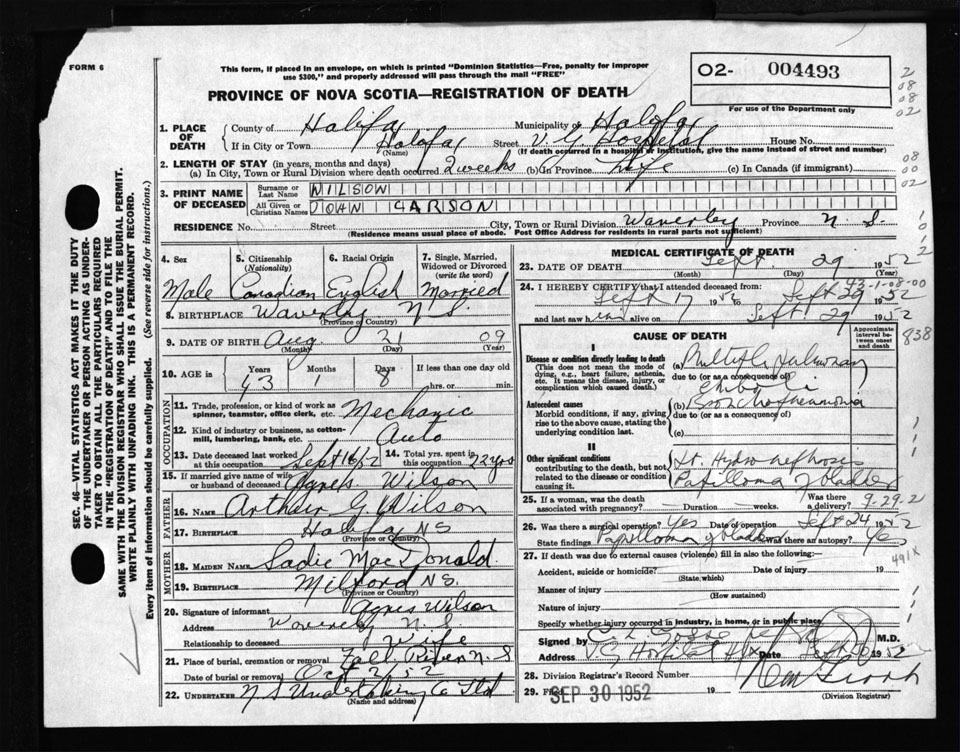 FORM 6
This form, if placed in an envelope, on which is printed "Dominion Statistics—Free, penalty for improper
use $300," and properly addressed will pass through the mail "FREE"
O2- 004493
For use of the Department only
PROVINCE OF NOVA SCOTIA—REGISTRATION OF DEATH
2
08
08
02
08
00
02
1. PLACE OF DEATH
County of Halifax Municipality of Halifax
If in City or Town Halifax Street V. G. Hospital House No.
(Name) (If death occurred in a hospital or institution, give the name instead of street and number)
2. LENGTH OF STAY (in years, months and days)
(a) In City, Town or Rural Division where death occurred 2 weeks (b) In Province Life (c) In Canada (if immigrant)
3. PRINT NAME OF DECEASED
Surname or Last Name WILSON
All Given or Christian Names JOHN CARSON
RESIDENCE No. Street City, Town or Rural Division Waverley Province N S.
(Residence means usual place of abode. Post Office Address for residents in rural parts not sufficient)
4. Sex Male
5. Citizenship (Nationality) Canadian
6. Racial Origin English
7. Single, Married, Widowed or Divorced (write the word) Married
8. BIRTHPLACE Waverley N. S.
(Province or Country)
9. DATE OF BIRTH Aug. 21 09
(Month) (Day) (Year)
10. AGE in Years Months Days If less than one day old
43 1 8 hrs. or min.
OCCUPATION
11. Trade, profession, or kind of work as spinner, teamster, office clerk, etc. Mechanic
12. Kind of industry or business, as cotton-mill, lumbering, bank, etc. Auto
13. Date deceased last worked at this occupation Sept 16/52
14. Total yrs. spent in this occupation 22 yrs
15. If married give name of wife or husband of deceased Agnes Wilson
FATHER
16. NAME Arthur G. Wilson
17. BIRTHPLACE Halifax NS
(Province or Country)
MOTHER
18. MAIDEN NAME Sadie MacDonald
19. BIRTHPLACE Milford N.S.
(Province or Country)
20. Signature of informant Agnes Wilson
Address Waverley N. S
Relationship to deceased Wife
21. Place of burial, cremation or removal Fall River N. S
Date of burial or removal Oct 2/52
22. UNDERTAKER N. S Undertaking Co Ltd
(Name and address)
MEDICAL CERTIFICATE OF DEATH
23. DATE OF DEATH Sept. 29 1952
(Month) (Day) (Year)
24. I HEREBY CERTIFY that I attended deceased from:
Sept 17 1952 to Sept 29 1952
43-1-08-00
and last saw him alive on Sept 29 1952
838
CAUSE OF DEATH
Approximate interval between onset and death
I
Disease or condition directly leading to death
(This does not mean the mode of dying, e.g., heart failure, asthenia, etc. It means the disease, injury, or complication which caused death.)
(a) Multiple Pulmonary
due to (or as a consequence of)
Emboli
Antecedent causes
Morbid conditions, if any, giving rise to the above cause, stating the underlying condition last.
(b) Bronchopneumonia
due to (or as a consequence of)
(c)
II
Other significant conditions
contributing to the death, but not related to the disease or condition causing it.
Hydronephrosis
Papilloma of bladder
25. If a woman, was the death associated with pregnancy? Duration weeks. Was there a delivery?
9-29-2
26. Was there a surgical operation? Yes Date of operation Sept 24 1952
State findings Papilloma of bladder Was there an autopsy? Yes
491X
27. If death was due to external causes (violence) fill in also the following:—
Accident, suicide or homicide? Date of injury 19
(State which)
Manner of injury
(How sustained)
Nature of injury
Specify whether injury occurred in industry, in home, or in public place.
Signed by M.D.
Address V. G. Hospital Hfx Date Sept 1952
28. Division Registrar's Record Number
29. Filed SEP 30 1952 19
(Division Registrar)
SEC. 46—VITAL STATISTICS ACT MAKES IT THE DUTY
OF THE UNDERTAKER OR PERSON ACTING AS UNDER-
TAKER TO OBTAIN ALL THE PARTICULARS REQUIRED
IN THE "REGISTRATION OF DEATH" AND TO FILE THE
SAME WITH THE DIVISION REGISTRAR WHO SHALL ISSUE THE BURIAL PERMIT.
WRITE PLAINLY WITH UNFADING INK. THIS IS A PERMANENT RECORD.
Every item of information should be carefully supplied. (See reverse side for instructions.)